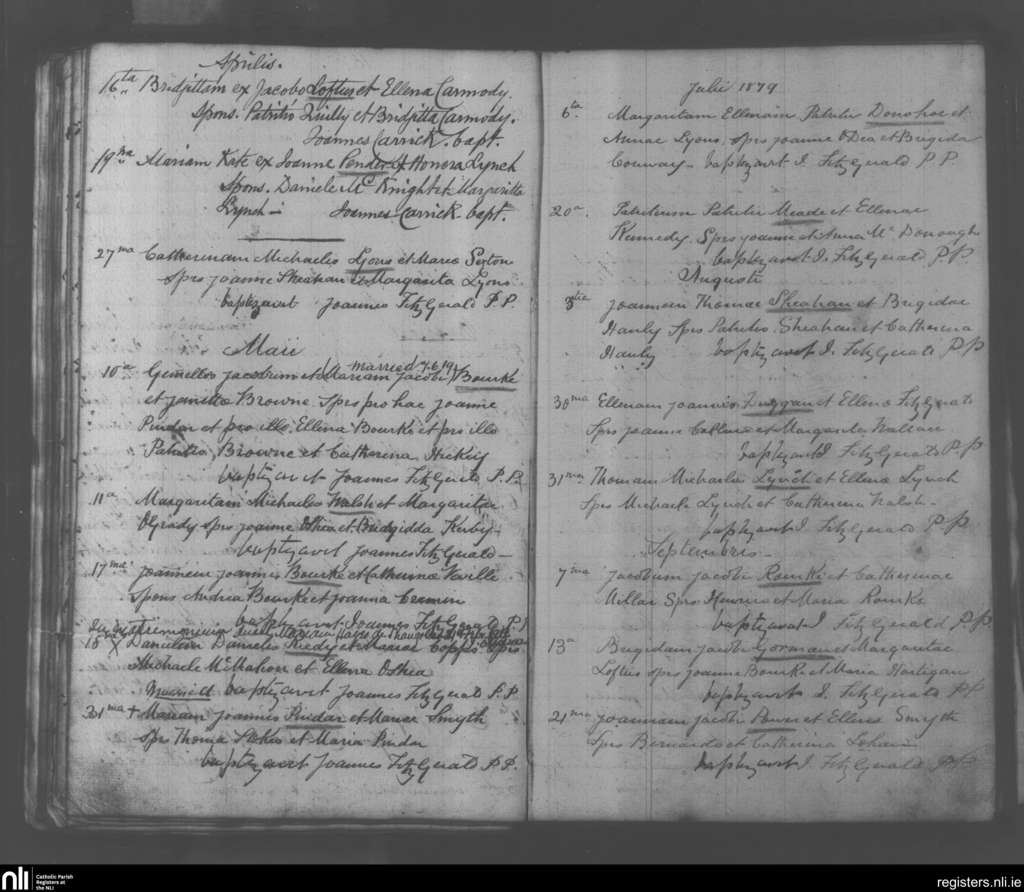 Aprilis.
16ta Bridgittam ex Jacobo Loftus et Ellena Carmody.
Spons. Patritio Quilty et Bridgitta Carmody.
Joannes Carrick. bapt.
19na Mariam Kate ex Joanne Pender et Honora Lynch
Spons. Daniele Mc Knight et Margaritta
Lynch — Joannes Carrick. bapt.
27ma Catherinam Michaelis Lyons et Maria Sexton
Sprs Joanne Sheahan et Margarita Lyons
baptizavit Joannes FitzGerald P.P.
Maii
married
10a Gemellos Jacobum et Mariam Jacobi Bourke
et Browne Sprs pro hac Joanne
Pindar et pro illo Ellena Bourke et pro illo
Patritio Browne et Catherina Hickey
baptizavit Joannes FitzGerald P.P.
11a Margaritam Michaelis Walsh et Margaritae
OGrady sprs Joanne OShea et Bridgidda Kirby
baptizavit Joannes FitzGerald —
17ma Joannem Joannis Bourke et Catherinae Neville
Spons Andrea Bourke et Joanna Cremin
baptizavit Joannes FitzGerald P.P.
18 X Danielem Danielis et Mariae Sprs
Michaele McMahon et Ellena OShea
Married baptizavit Joannes FitzGerald P.P.
31ma + Mariam Joannis Pindar et Mariae Smyth
Sprs Thoma Stokes et Maria Pindar
baptizavit Joannes FitzGerald P.P.
Julii 1879
6ta Margaritam Ellenam Patritii Donohoe et
Annae Lyons, sprs Joanne ODea et Brigida
Conway — baptizavit J. FitzGerald P P.
20a. Patritium Patritii Meade et Ellenae
Kennedy. Sprs Joanne et Anna Mc Donough
baptizavit J. FitzGerald P P
Augusti
3tia Joannem Thomae Sheahan et Brigidae
Hanly Sprs Patritio Sheahan et Catherina
Hanly baptizavit J. FitzGerald P P
30ma Ellenam Joannis Duggan et Ellena FitzGerald
Sprs Joanne et Margarita Wallace
baptizavit J FitzGerald P P
31ma Thomam Michaelis Lynch et Ellena Lynch
Sprs Michaele Lynch et Catherina Walsh
baptizavit J. FitzGerald P P
Septembris —
7ma Jacobum Jacobi Rourke et Catherinae
Sprs et Maria Rourke
baptizavit J FitzGerald P P
13a Brigidam Jacobi Gorman et Margaritae
Loftus sprs Joanne Bourke et Maria Hartigan
baptizavit J. FitzGerald P P
21ma Joannam Jacobi Power et Ellena Smyth
Sprs Bernardo et Catherina
baptizavit J. FitzGerald P P
nli
Catholic Parish
Registers at
the NLI
registers.nli.ie